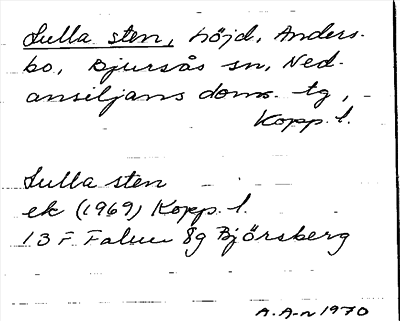 Lulla sten, höjd, Anders-
bo, Bjursås sn, Ned-
ansiljans doms. tg,
Kopp. l.
Lulla sten
ek (1969) Kopp. l.
13 F Falun 8g Björsberg
A. A-n 1970